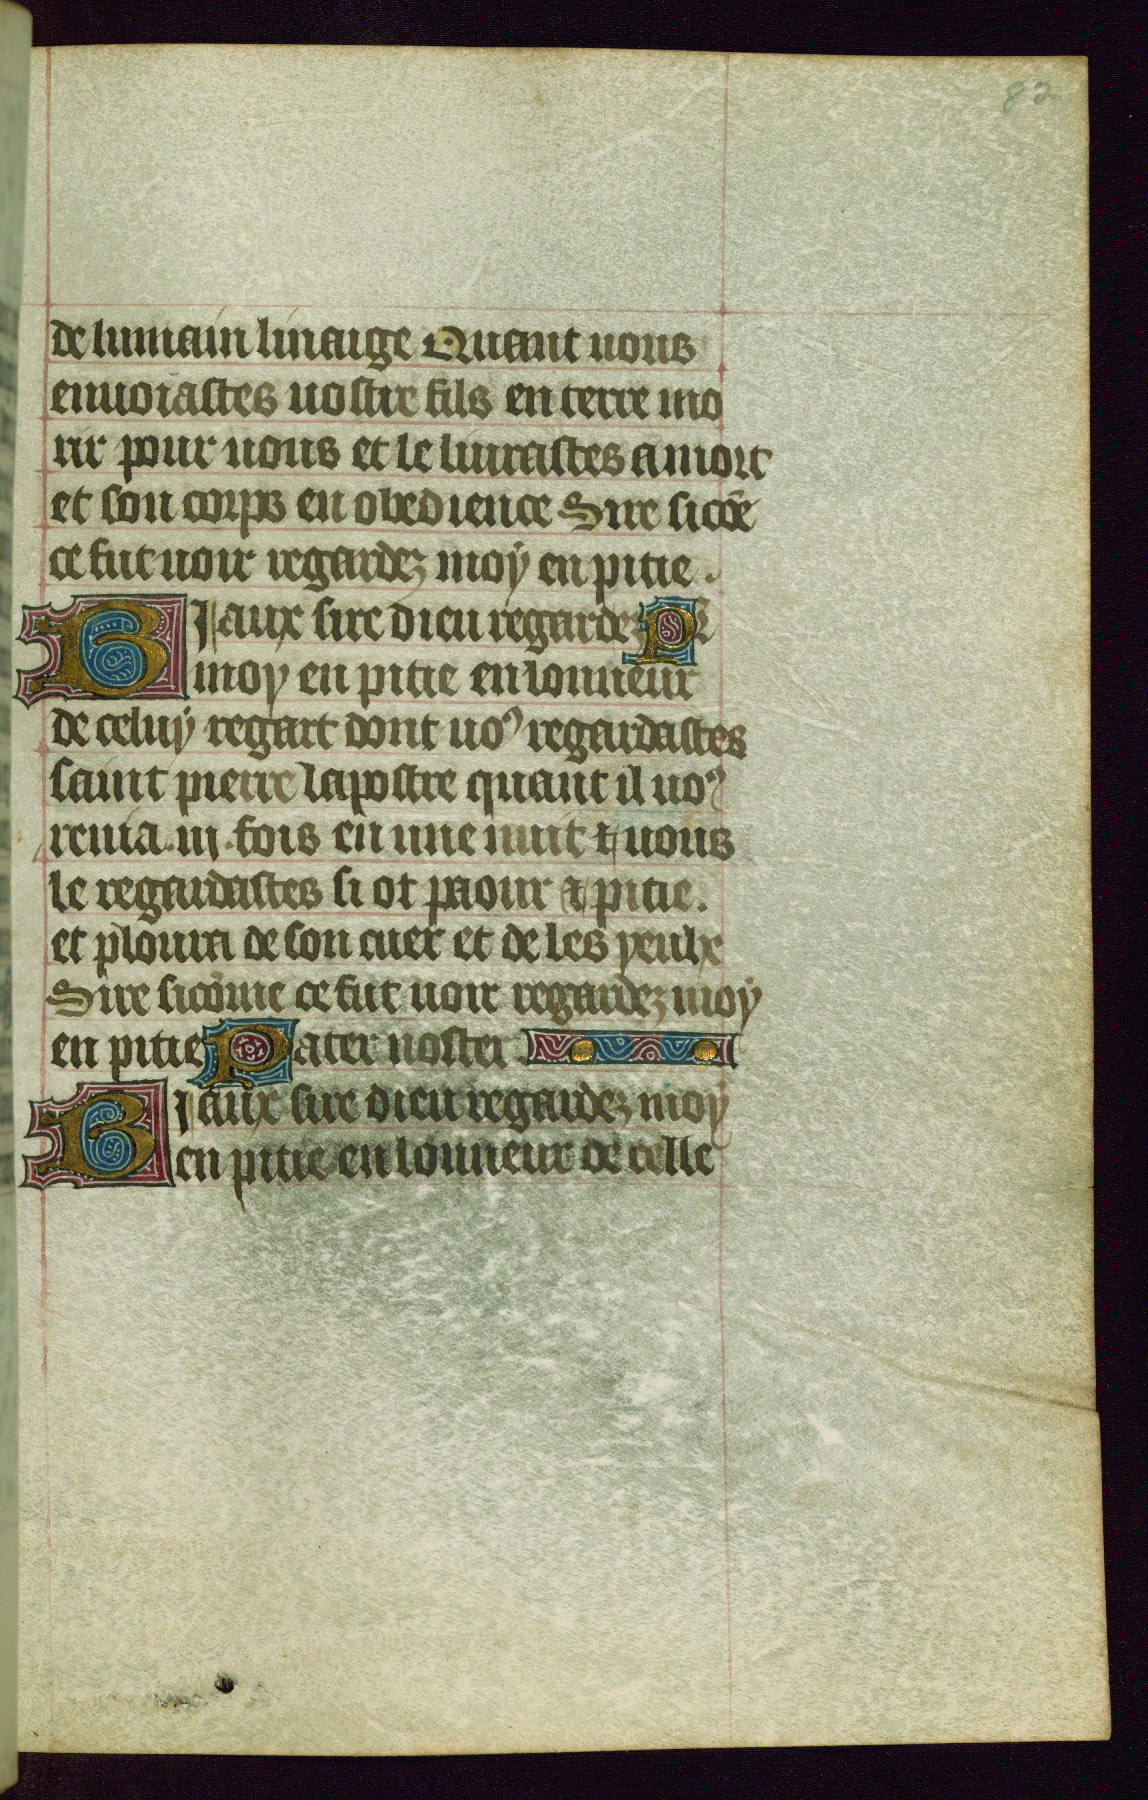 82
de lumain linaige Quant uous
enuoiastes uostre fils en terre mo
rir pour uous et le liurastes a mort
et son corps en obedience Sire si cōe
ce fut uoir regardez moy en pitie .
Biaux sire dieu regardez Pr̄
moy en pitie en lonneur
de celuy regart dont uoꝰ regardastes
saint pierre lapostre quant il uoꝰ
renia .iij. fois en une nuit ⁊ uous
le regardastes si ot paour ⁊ pitie.
et ploura de son cuer et de les yeulx
Sire si cōme ce fut uoir regardez moy
en pitie Pater noster
Biaux sire dieu regardez moy
en pitie en lonneur de celle